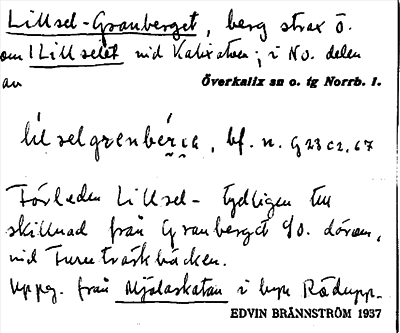 Lillsel-Granberget, berg strax ö.
om Lillselet vid Kalixälven; i NO. delen
av Överkalix sn o. tg Norrb. l.
lilselgrenbérje, bf. n. G23 c2.67
Förleden Lillsel- tydligen till
skillnad från Granberget SO. därom,
vid Furuträskbäcken.
Uppg. från Mjölaskatan i byn Rödupp.
EDVIN BRÄNNSTRÖM 1937